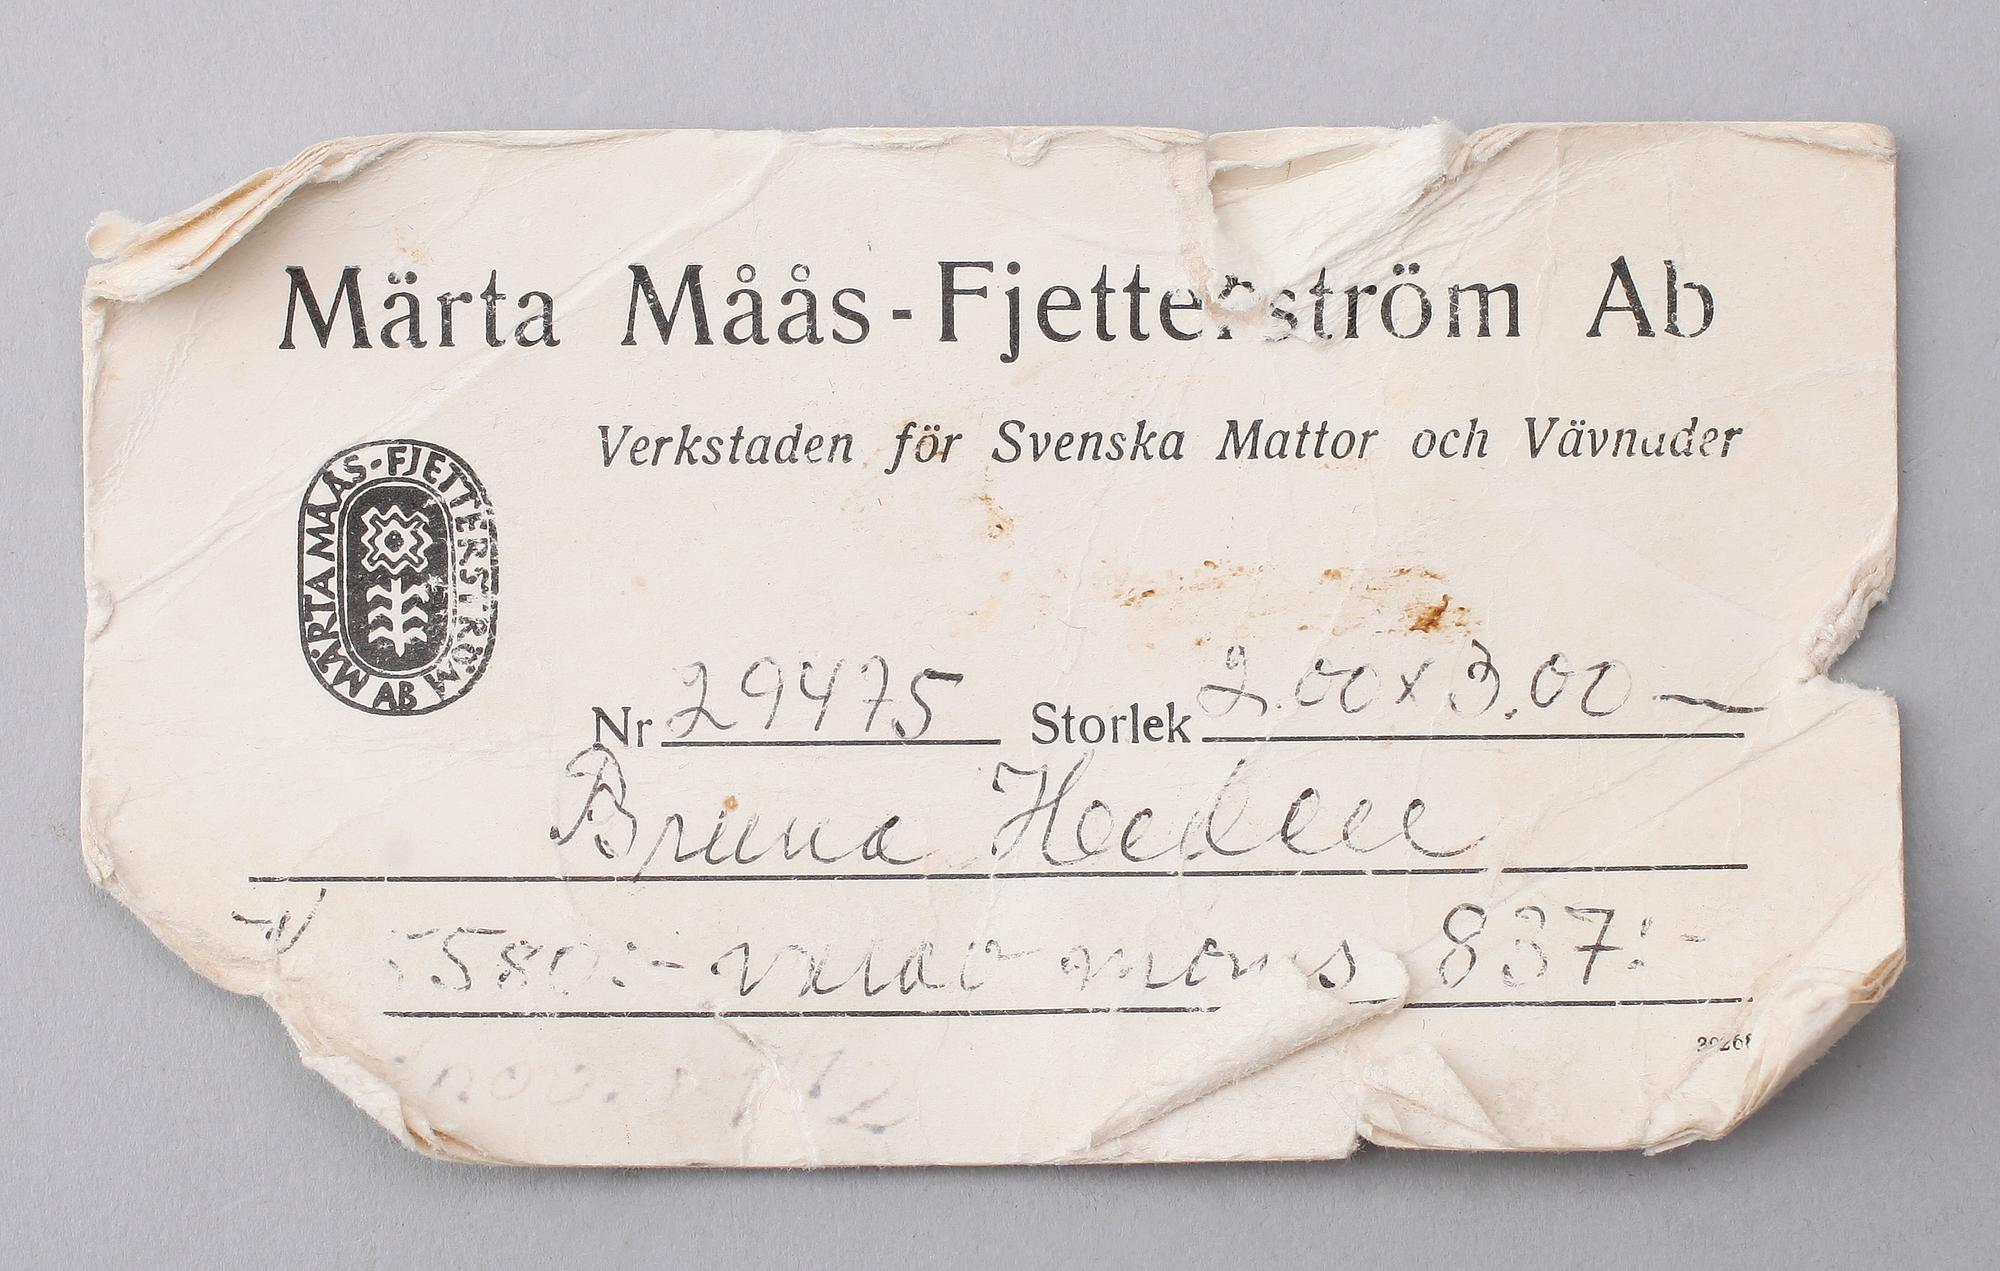 Märta Måås-Fjetterström Ab
Verkstaden för Svenska Mattor och Vävnader
MÄRTA MÅÅS-FJETTERSTRÖM AB
Nr 29475 Storlek 2.00 x 3.00
Bruna Heden
5580:- moms 837:-